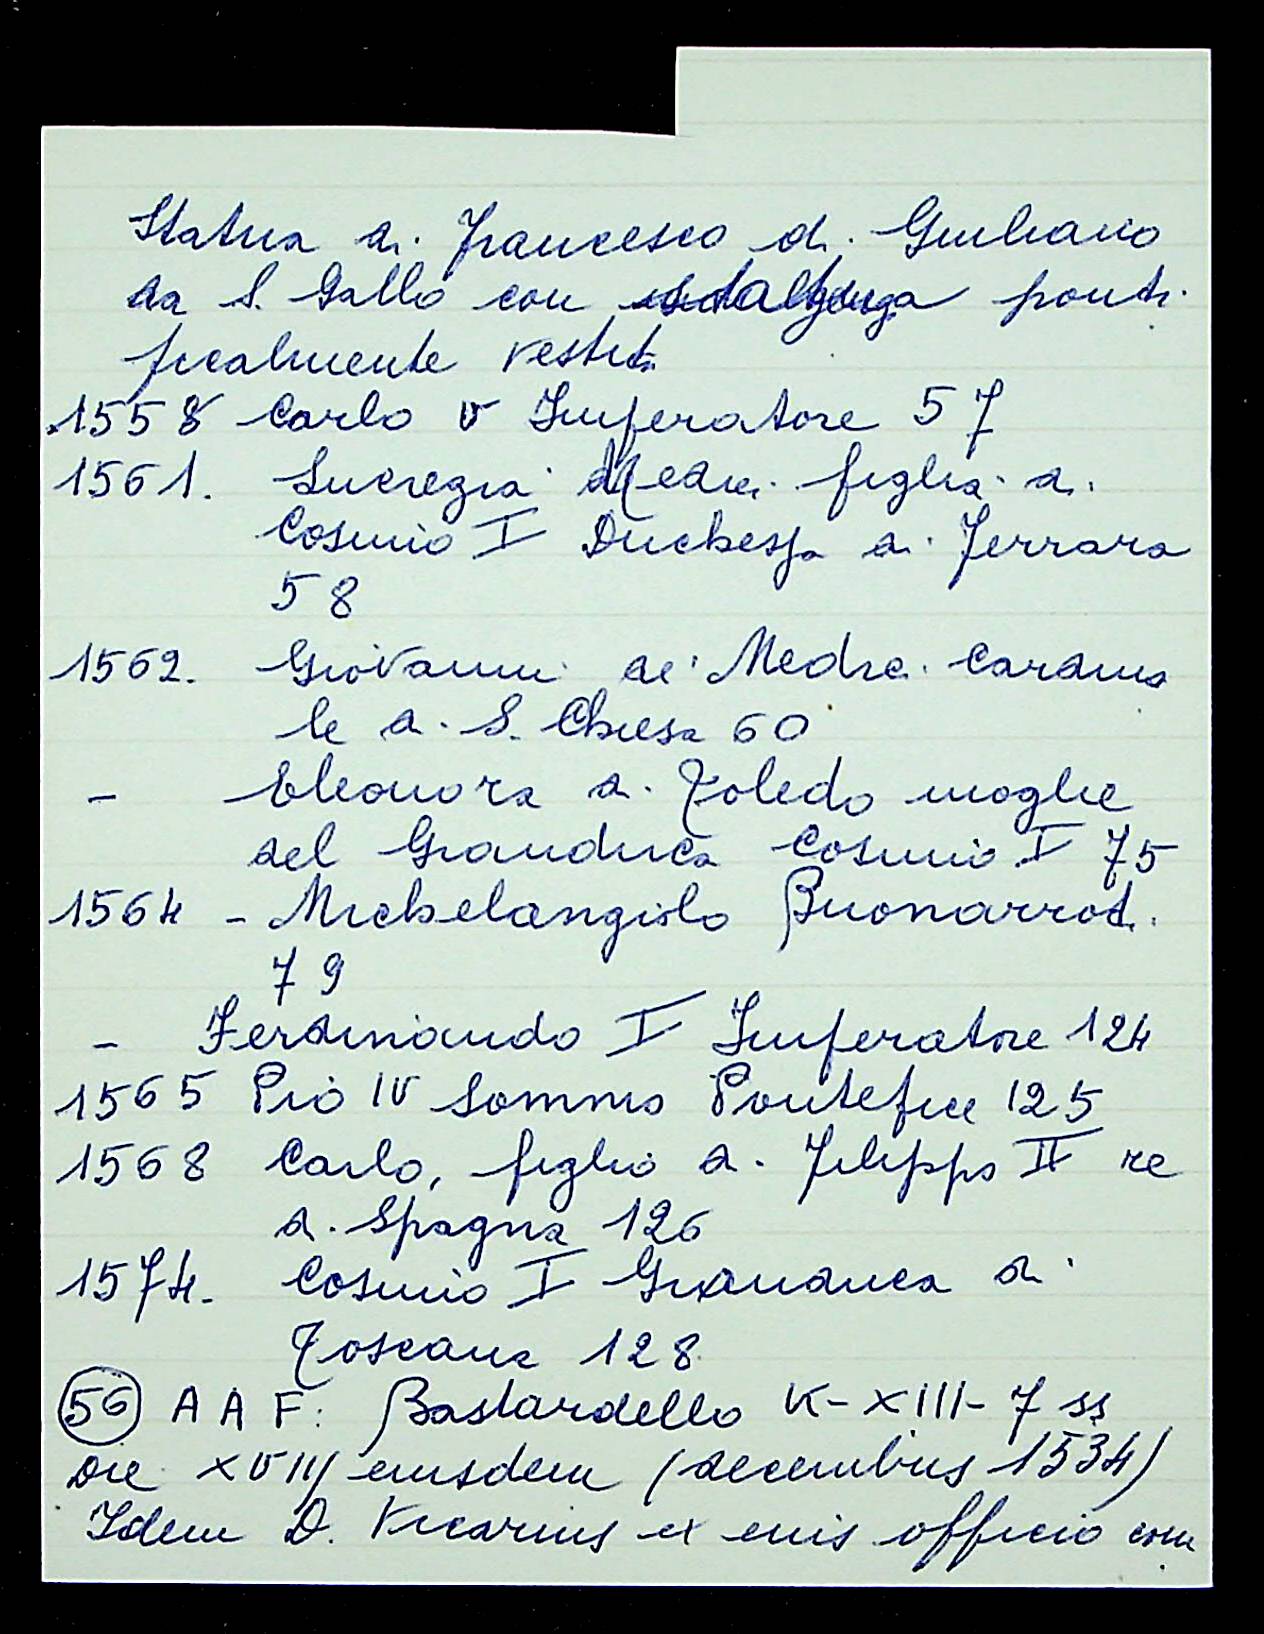 Statua di Francesco di Giuliano
da S. Gallo con ponti
ficalmente vestit.
1558 Carlo V Imperatore 57
1561. Lucrezia Medici figlia di
Cosimo I Duchessa di Ferrara
58
1562. Giovanni de' Medici Cardina
le di S. Chiesa 60
- Eleonora di Toledo moglie
del Granduca Cosimo I 75
1564 - Michelangiolo Buonarroti
79
- Ferdinando I Imperatore 124
1565 Pio IV Sommo Pontefice 125
1568 Carlo, figlio di Filippo II re
di Spagna 126
1574. Cosimo I Granduca di
Toscana 128
56 A A F: Bastardello K-XIII-7 ss
Die XVIII eiusdem (decembris 1534)
Idem D. Vicarius ex eius officio com